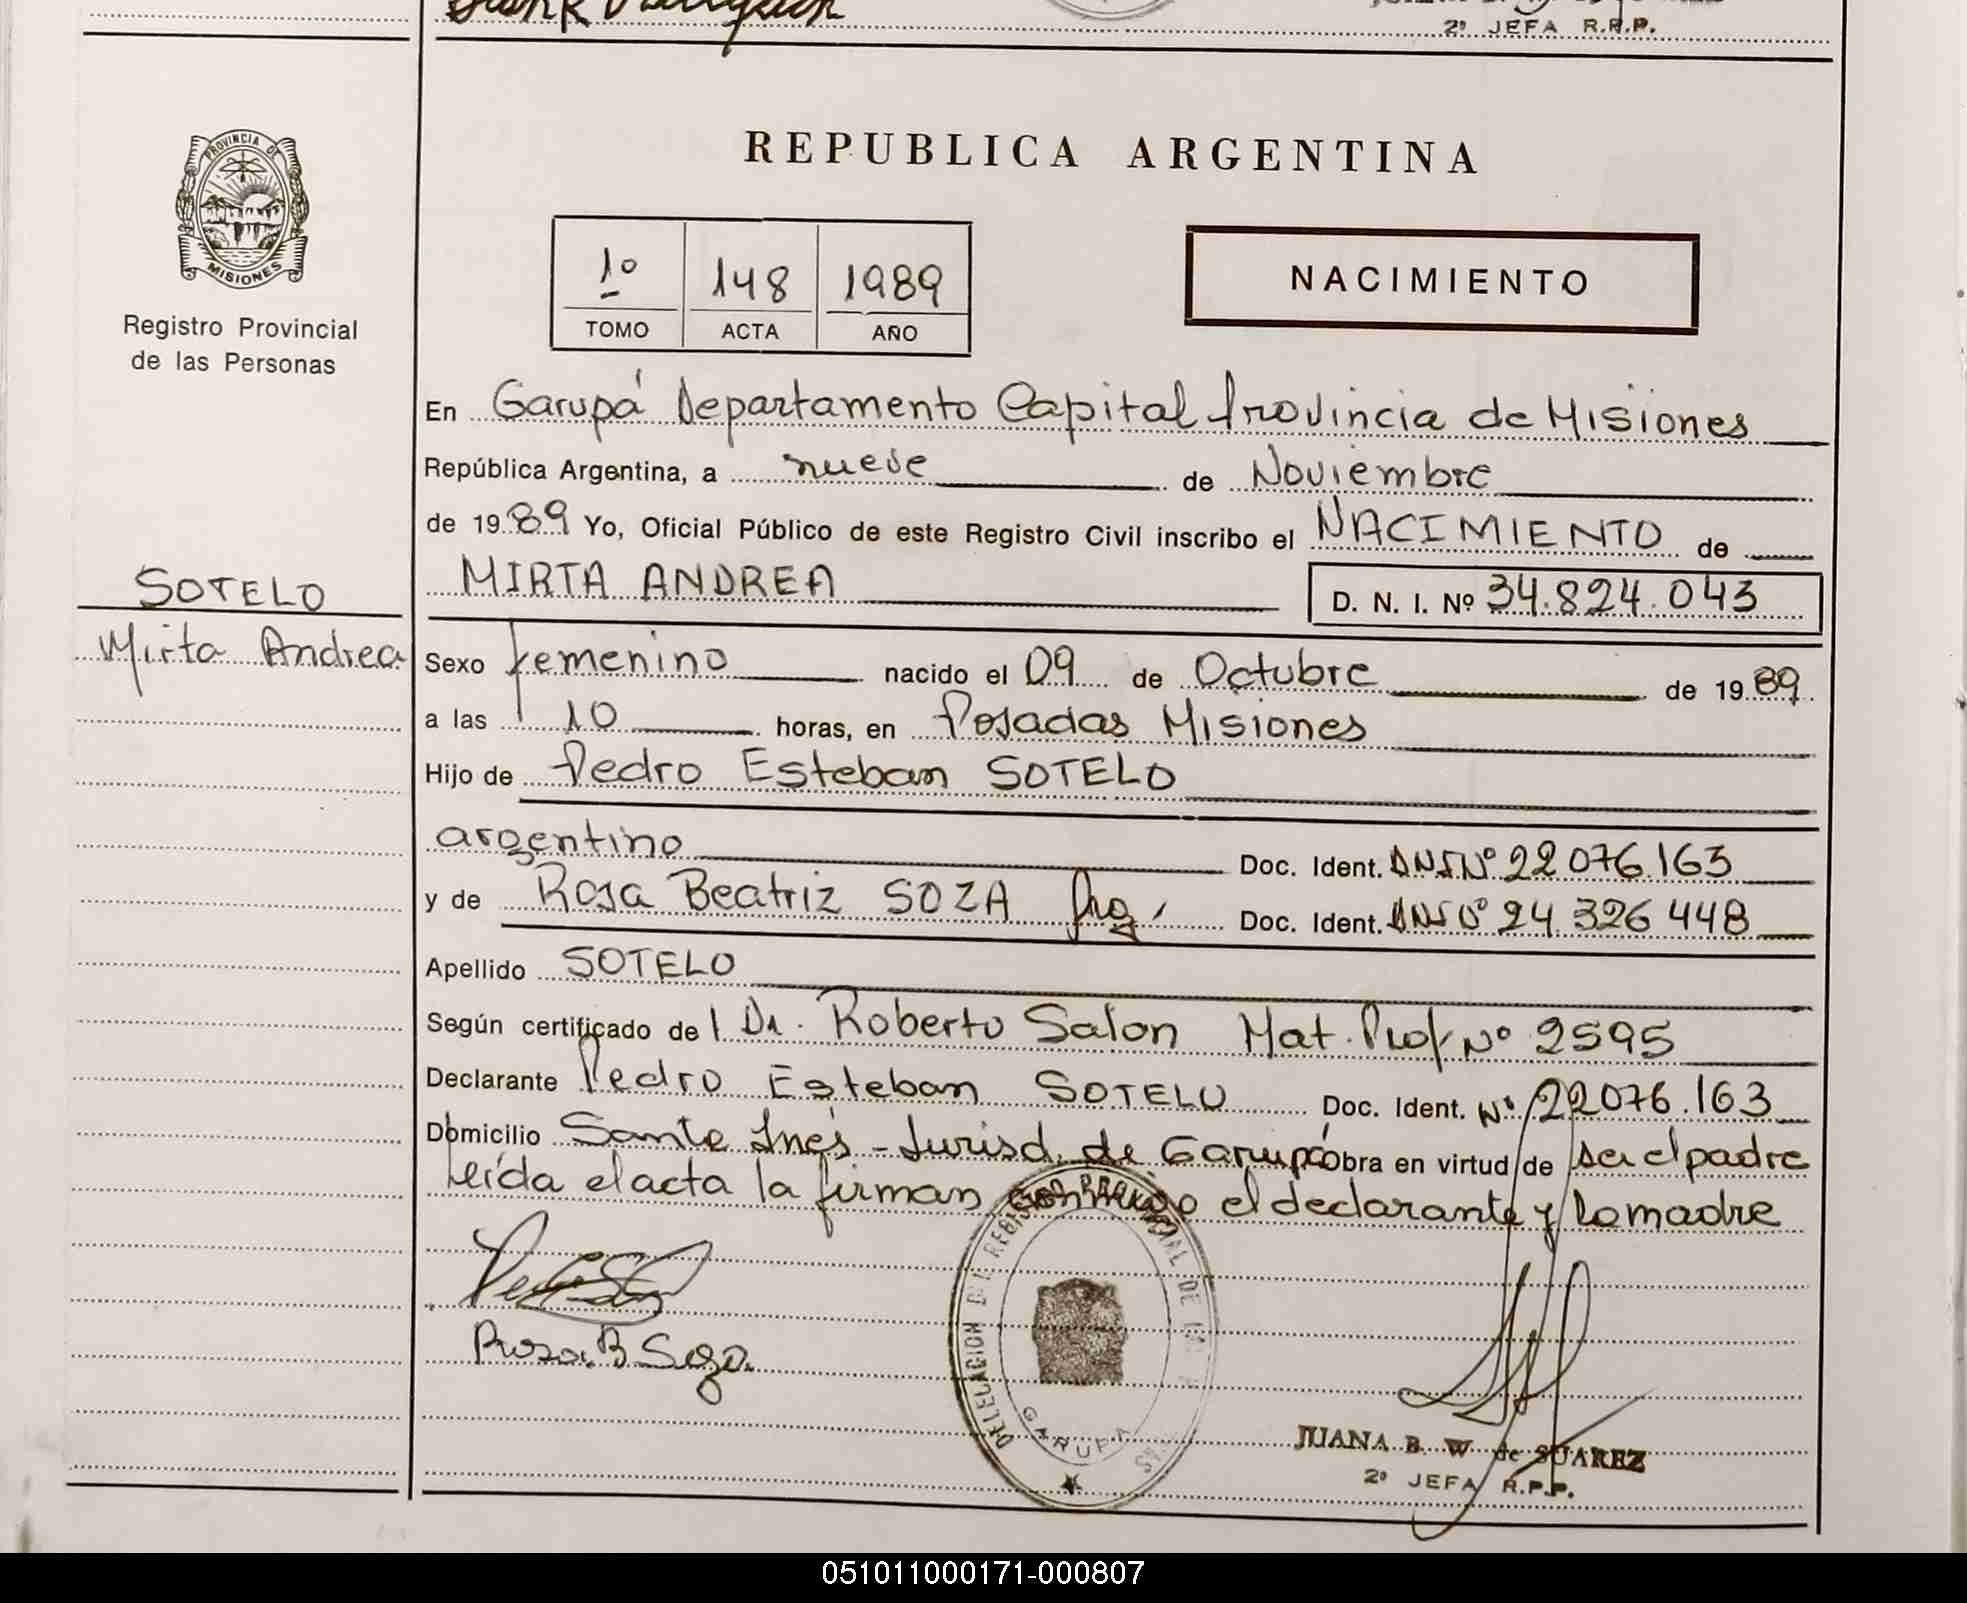 2º JEFA R.R.P.
PROVINCIA DE
MISIONES
Registro Provincial
de las Personas
SOTELO
Mirta Andrea
REPUBLICA ARGENTINA
1º 148 1989
TOMO ACTA AÑO
NACIMIENTO
En Garupá Departamento Capital Provincia de Misiones
República Argentina, a nueve de Noviembre
de 1989 Yo, Oficial Público de este Registro Civil inscribo el NACIMIENTO de
MIRTA ANDREA D. N. I. Nº 34.824.043
Sexo femenino nacido el 09 de Octubre de 1989
a las 10 horas, en Posadas Misiones
Hijo de Pedro Esteban SOTELO
argentino Doc. Ident. DNI Nº 22 076.163
y de Rosa Beatriz SOZA Arg. Doc. Ident. DNI Nº 24 326 448
Apellido SOTELO
Según certificado de l Dr. Roberto Salon Mat. Prof Nº 2595
Declarante Pedro Esteban SOTELO Doc. Ident. Nº 22076.163
Domicilio Santa Inés - Jurisd. de Garupá Obra en virtud de ser el padre
Leída el acta la firman conmigo el declarante y la madre
Rosa B Soza
DELEGACION DEL REGISTRO PROVINCIAL DE
GARUPA
JUANA B. W. de SUAREZ
2º JEFA R.P.P.
051011000171-000807